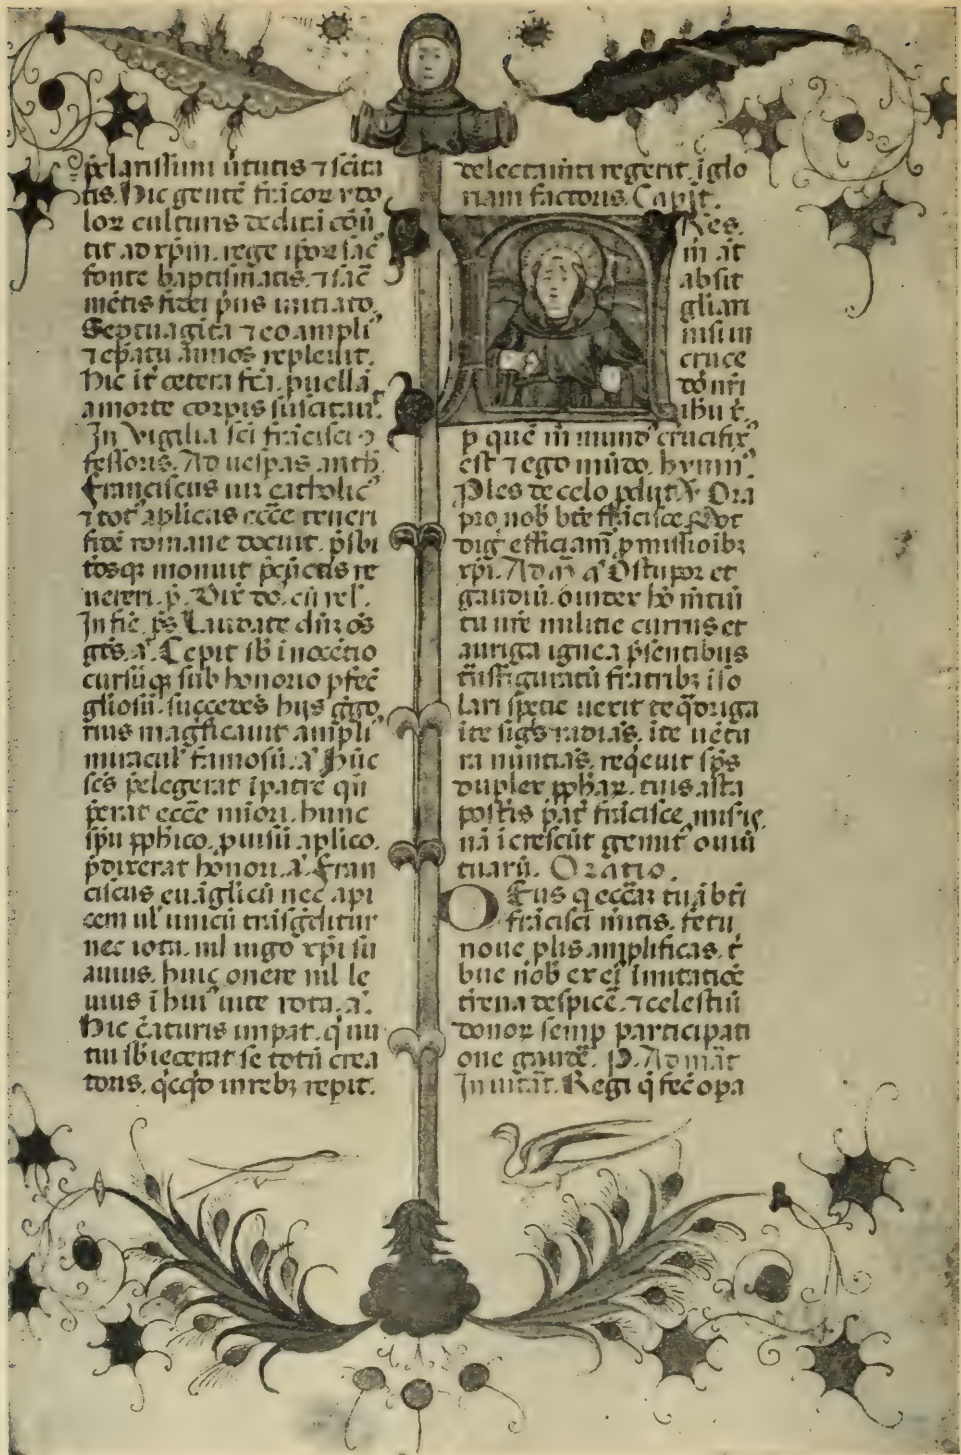 p̄clarissimi u̇tutis ⁊ sc̄ita
tis. Hic gentē fr̄icor ydo
lor culturis dediti cōu̇
tit ad xp̄m. rege ip̄or sac̄
fonte baptismatis. ⁊ sac̄
mētis fidei p̄us initiato.
Septuagīta ⁊ eo ampli⁹
⁊ ep̄atu annos repleuit.
Hic it̄ cetera sc̄i. puellā
a morte corp̄is suscitau̇t.
In vigilia sc̄i fr̄acisci 9
fessoris. Ad uesp̄as anth̄.
Franciscus uir catholic⁹
⁊ tot⁹ ap̄licus ecc̄e teneri
fidē romane docuit. p̄sbi
tosq; monuit p̄ cūctis re
uereri. p̄. Dix̄ dō. cū rel̄.
In fiē. p̄s. Laudate dn̄m oēs
gēs. a̓. Cepit sb̄ inocētio
cursūq; sub honorio p̄fec̄
gliosū. succedēs hijs g̓go
rius mag̓ficauit ampli⁹
miracul̓ famosū. a̓. Hūc
scs̄ p̄elegerat ī patrē qn̄
p̄erat ecc̄e mīori. hunc
sp̄u p̄phico. p̄uisū ap̄lico.
p̄dixerat honori. a̓. Fran
ciscus euāglicū nec api
cem uł unicū trāsg̓ditur
nec iota. nil iugo xp̄i su
auius. huic onere nil le
uius ī hui⁹ uite rota. a̓.
Hic c̄aturis imp̄at. q̓ nu
tui sb̄iecerat se totū crea
toris. q̓cq̓d in reb; rep̄it.
delectam̄ti regerit. ī glo
riam factoris. Capit̄.
Fres.
m̄ āt
absit
gl̄iari
nisi in
cruce
dōi nr̄i
ihu x̄.
p quē m̄ mund⁹ crucifix⁹
est ⁊ ego mūdo. hymn⁹.
Ples de celo p̄dijt. V̓. Ora
pro nob̄ bt̄e fr̄acisce. R̓. Vt
dig̓ efficiam̄ p̄missioib;
xp̄i. Ad m̄. a̓. O stupor et
gaudiū. o iudex hō m̄tiū
tu nr̄e militie currus et
auriga ignea p̄sentibus
t̄nsfiguratū fratrib; ī so
lari sp̄ecie uexit te q̓driga
ī te sig̓s radias. ī te uētu
ra nuntias. req̓euit sp̄s
duplex p̄phar̄. tuis asta
postis pat̄ fr̄acisce, mise
nā ī crescūt gemit⁹ ouiū
tuarū. Oratio.
Deus q̓ ecc̄az tuā bt̄i
fr̄acisci m̄itis. fetu
noue plis amplificas. t̓
bue nob̄ ex ei⁹ imitatiōe
t̓rena despicē. ⁊ celestiū
donor semp participati
one gaudē. P. Ad māt̄
Inuitāt. Regi q̓ fec̄ opa